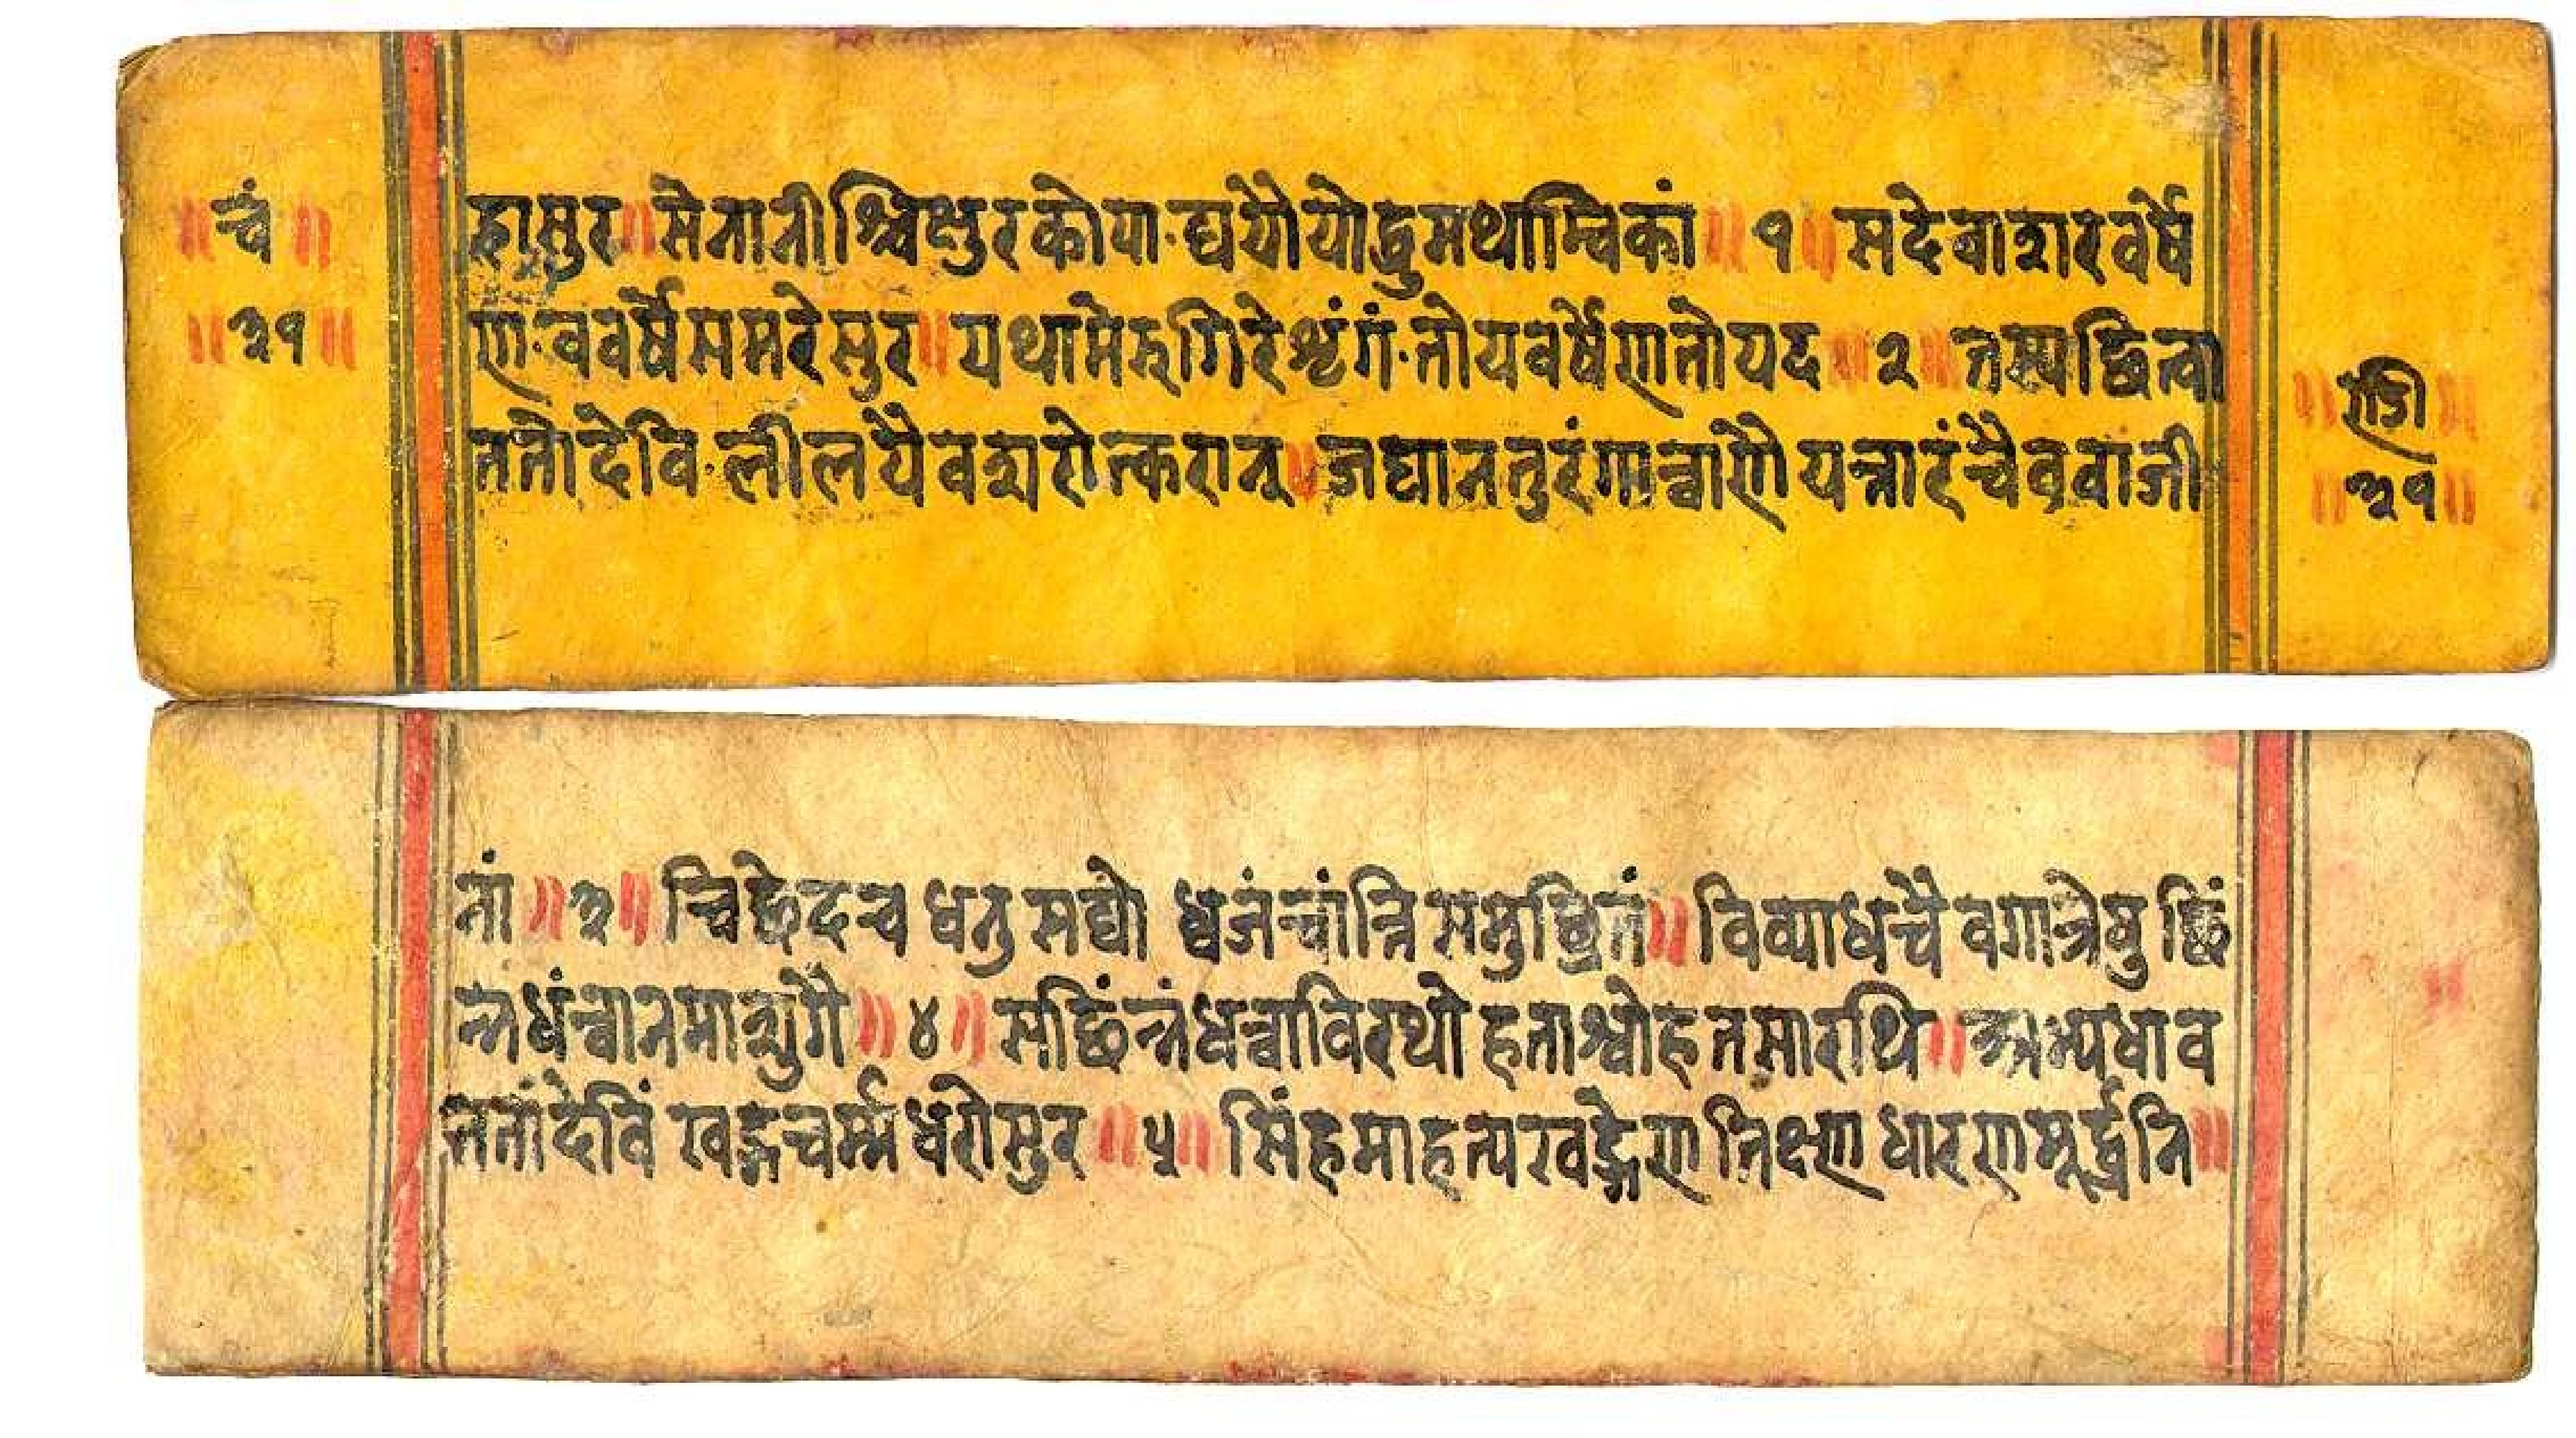 ॥ चं ॥
॥ ३१ ॥
हासुर॥ सेनानीश्चिक्षुरकोपा·द्ययौयोद्धुमथाम्विकां॥ १॥ सदेवीशरवर्षे
ण·ववर्षसमरेसुर॥ यथामेरुगिरेशृंगं·तोयवर्षेणतोयद॥ २॥ तस्यछित्वा
ततोदेवि·लीलयैवशरोत्करान्॥ जघानतुरंगान्वाणै यन्तारंचैववाजी
॥ ण्डी ॥
॥ ३१ ॥
नां॥ ३॥ चिछेदच धनु सद्यो ध्वजंचांति समुछ्रितं॥ विव्याधचै वगात्रेषु छिं
न्नधंन्वानमाशुगै॥ ४॥ सछिंन्नंधन्वाविरथो हताश्वोहतसारथि॥ अभ्यधाव
ततांदेविं खड्गचर्म्मधरोसुर॥ ५॥ सिंहमाहत्यखड्गेण तिक्ष्णधारणमूर्द्धनि॥